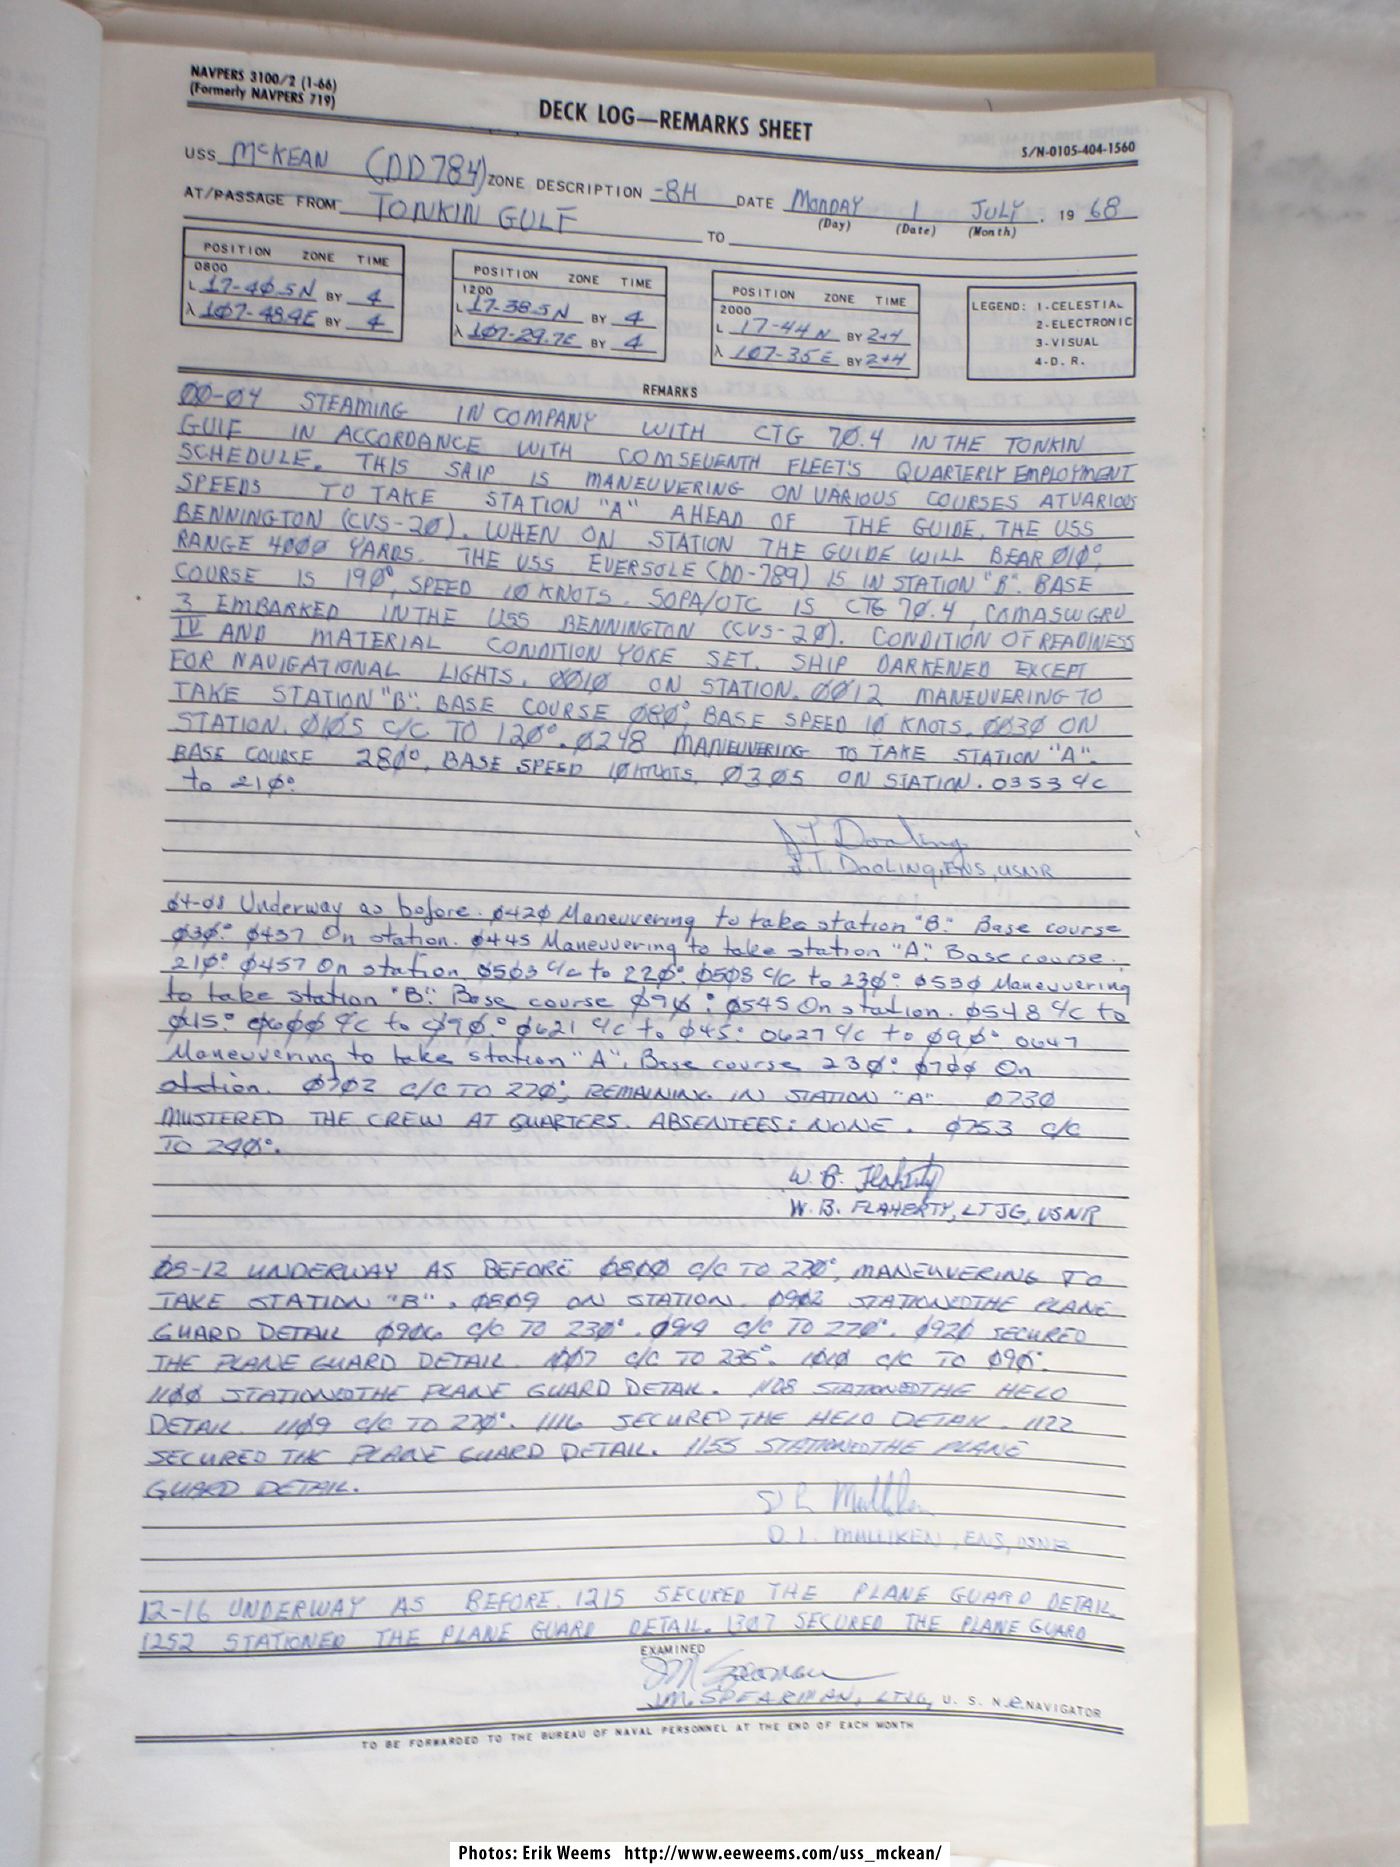 NAVPERS 3100/2 (1-66)
(Formerly NAVPERS 719)
DECK LOG—REMARKS SHEET
S/N-0105-404-1560
USS McKEAN (DD784) ZONE DESCRIPTION -8H DATE MONDAY 1 JULY, 19 68
(Day) (Date) (Month)
AT/PASSAGE FROM TONKIN GULF TO
POSITION ZONE TIME
0800
L 17-40.5N BY 4
λ 107-48.4E BY 4
POSITION ZONE TIME
1200
L 17-38.5N BY 4
λ 107-29.7E BY 4
POSITION ZONE TIME
2000
L 17-44N BY 2+4
λ 107-35E BY 2+4
LEGEND: 1-CELESTIAL
2-ELECTRONIC
3-VISUAL
4-D. R.
REMARKS
00-04 STEAMING IN COMPANY WITH CTG 70.4 IN THE TONKIN
GULF IN ACCORDANCE WITH COMSEVENTH FLEET'S QUARTERLY EMPLOYMENT
SCHEDULE. THIS SHIP IS MANEUVERING ON VARIOUS COURSES AT VARIOUS
SPEEDS TO TAKE STATION "A" AHEAD OF THE GUIDE, THE USS
BENNINGTON (CVS-20). WHEN ON STATION THE GUIDE WILL BEAR 010°,
RANGE 4000 YARDS. THE USS EVERSOLE (DD-789) IS IN STATION "B". BASE
COURSE IS 190°, SPEED 10 KNOTS. SOPA/OTC IS CTG 70.4, COMASWGRU
3 EMBARKED IN THE USS BENNINGTON (CVS-20). CONDITION OF READINESS
IV AND MATERIAL CONDITION YOKE SET. SHIP DARKENED EXCEPT
FOR NAVIGATIONAL LIGHTS. 0010 ON STATION. 0012 MANEUVERING TO
TAKE STATION "B". BASE COURSE 080°, BASE SPEED 10 KNOTS. 0030 ON
STATION. 0105 C/C TO 120°. 0248 MANEUVERING TO TAKE STATION "A".
BASE COURSE 280°, BASE SPEED 10 KNOTS. 0305 ON STATION. 0353 C/C
to 210°.
J.T. Dooling
J.T. DOOLING, ENS, USNR
04-08 Underway as before. 0420 Maneuvering to take station "B". Base course
030°. 0437 On station. 0445 Maneuvering to take station "A". Base course
210°. 0457 On station. 0503 C/c to 220°. 0508 C/c to 230°. 0530 Maneuvering
to take station "B". Base course 090°. 0545 On station. 0548 C/c to
015°. 0600 C/c to 090°. 0621 C/c to 045°. 0627 C/c to 090°. 0647
Maneuvering to take station "A". Base course 230°. 0700 On
station. 0702 C/C TO 270°, REMAINING IN STATION "A". 0730
MUSTERED THE CREW AT QUARTERS. ABSENTEES: NONE. 0753 C/C
TO 240°.
W. B. Flaherty
W. B. FLAHERTY, LTJG, USNR
08-12 UNDERWAY AS BEFORE 0800 C/C TO 270°, MANEUVERING TO
TAKE STATION "B". 0809 ON STATION. 0902 STATIONED THE PLANE
GUARD DETAIL 0906 C/C TO 230°. 0914 C/C TO 270°. 0920 SECURED
THE PLANE GUARD DETAIL. 1007 C/C TO 235°. 1010 C/C TO 090°.
1100 STATIONED THE PLANE GUARD DETAIL. 1108 STATIONED THE HELO
DETAIL. 1109 C/C TO 270°. 1116 SECURED THE HELO DETAIL. 1122
SECURED THE PLANE GUARD DETAIL. 1155 STATIONED THE PLANE
GUARD DETAIL.
D L Malliken
D. L. MALLIKEN, ENS, USNR
12-16 UNDERWAY AS BEFORE. 1215 SECURED THE PLANE GUARD DETAIL.
1252 STATIONED THE PLANE GUARD DETAIL. 1307 SECURED THE PLANE GUARD
EXAMINED
J M Spearman
J.M. SPEARMAN, LTJG, U. S. N.R. NAVIGATOR
TO BE FORWARDED TO THE BUREAU OF NAVAL PERSONNEL AT THE END OF EACH MONTH
Photos: Erik Weems http://www.eeweems.com/uss_mckean/